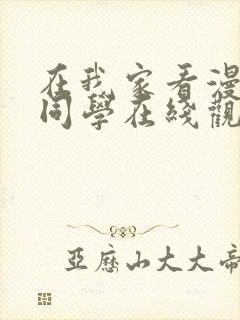 在我家看漫
同學在綫觀
亞歷山大大帝